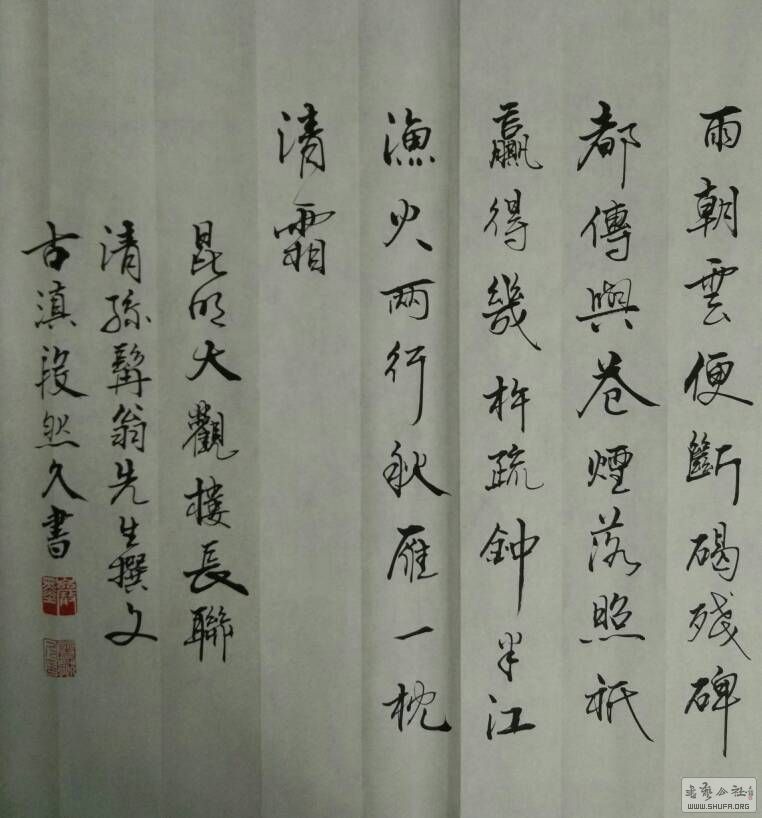 雨朝雲便斷碣殘碑
都傳與蒼煙落照祇
贏得幾杵疏鐘半江
漁火兩行秋雁一枕
清霜
昆明大觀樓長聯
清孫髯翁先生撰文
古滇段然久書
WWW.SHUFA.ORG